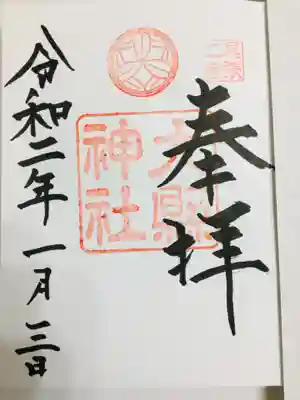 奉拝
大縣
神社
令和二年一月三日